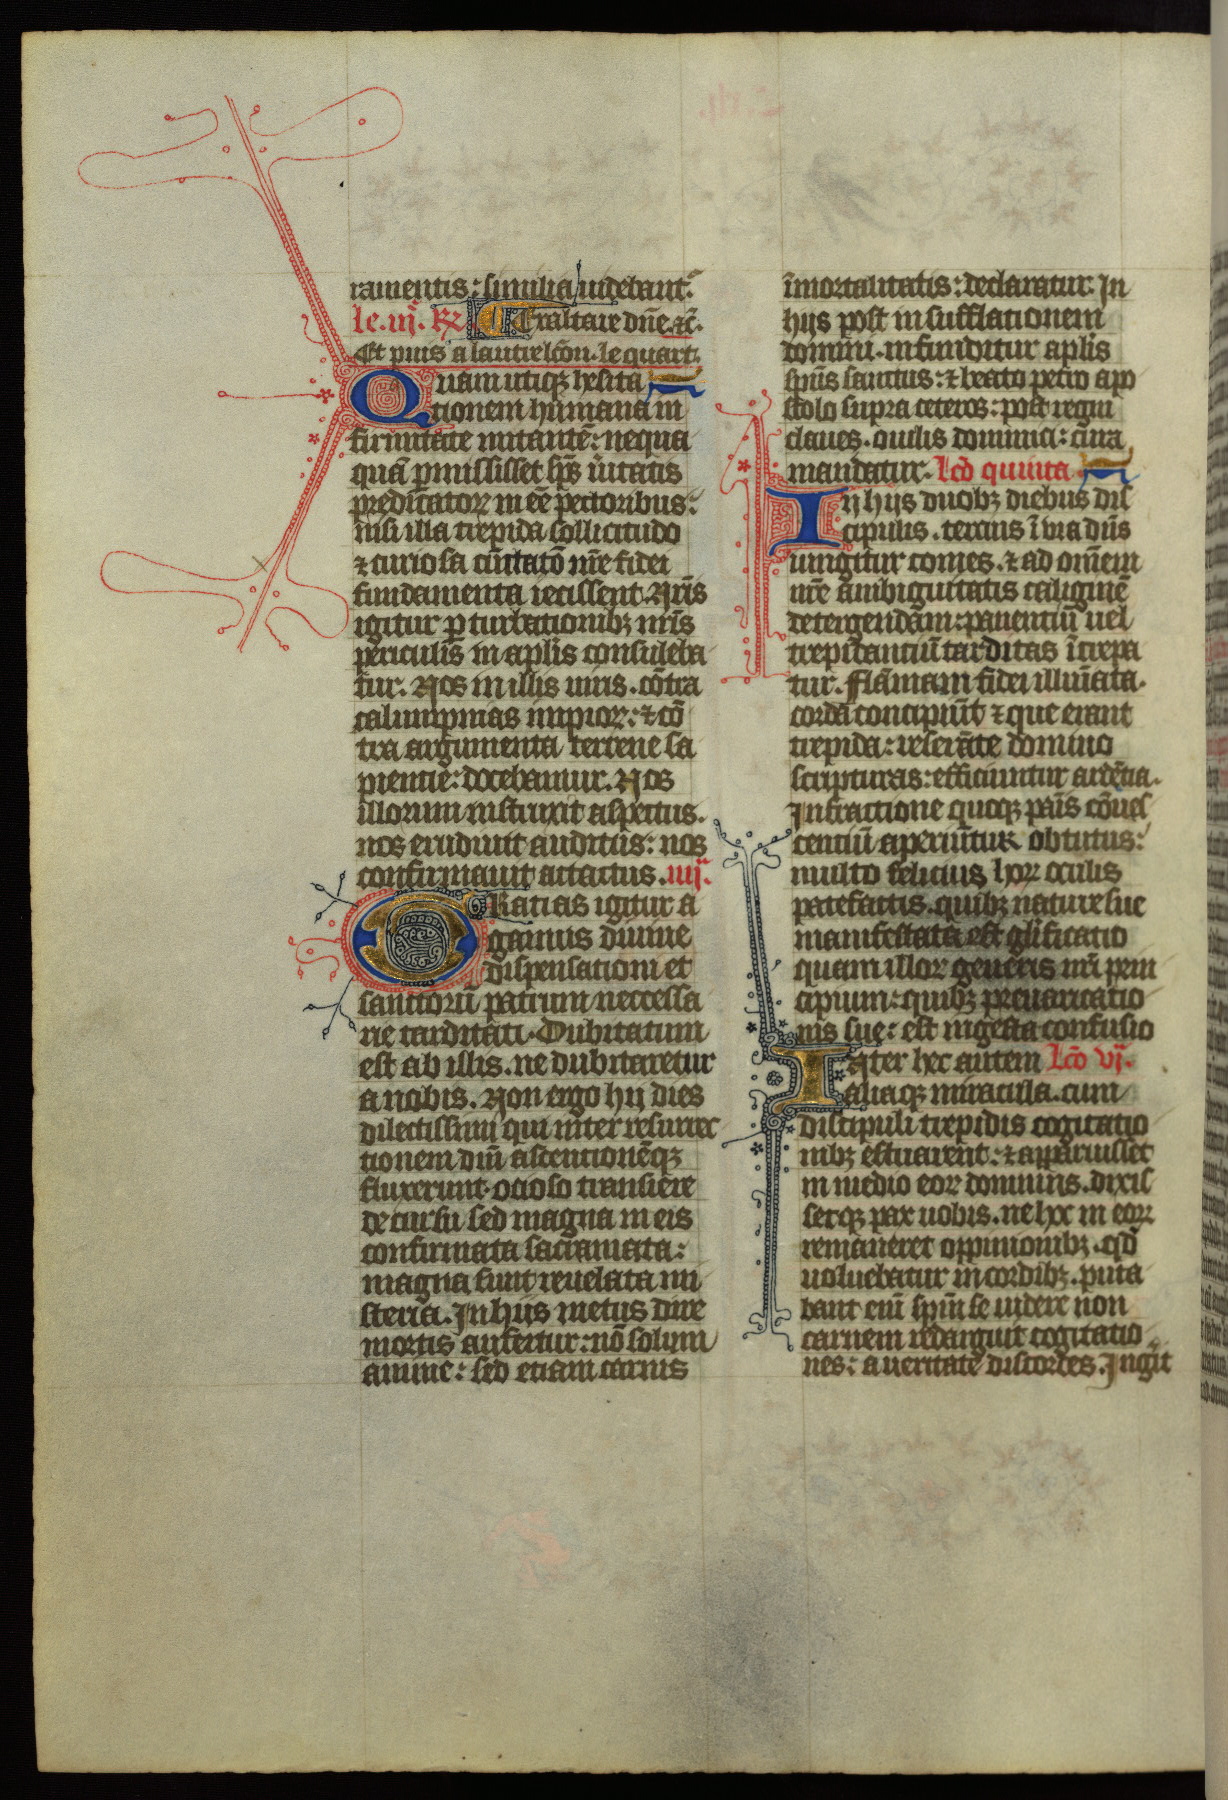 ramentis: similia uidebant᷑.
le. iij. R̸. Exaltare dn̄e. ⁊c̄.
Et puis a lautre lc̄on. le quart.
Quam utiqꝫ hesita
tionem humana in
firmitate nutantē: nequa
quā ꝑmisisset sp̄s ūitatis
predicatoꝝ inēē pectoribus:
nisi illa trepida sollicitudo
⁊ curiosa cūctatō nr̄e fidei
fundamenta iecissent. Nr̄is
igitur ꝑturbationibꝫ nr̄isqꝫ
periculis in apl̄is consuleba
tur. Nos in illis uiris. cōtra
calumpnias impioꝝ: ⁊ cō
tra argumenta terrene sa
pientie: docebamur. Nos
illorum instruxit aspectus.
nos erudiuit auditus: nos
confirmauit attactus. iiij.
Gratias igitur a
gamus diuine
dispensationi et
sanctorū patrum neccessa
rie tarditati. Dubitatum
est ab illis. ne dubitaretur
a nobis. Non ergo hij dies
dilectissimi qui inter resurrec
tionem dn̄i ascentionēqꝫ
fluxerunt. ocioso transiere
decursu sed magna in eis
confirmata sacramata:
magna sunt reuelata mi
steria. In hijs metus dire
mortis aufertur: nō solum
anime: sed etiam carnis
īmortalitatis: declaratur. In
hijs post in sufflationem
domini. infunditur apl̄is
sp̄us sanctus: ⁊ beato petro apo
stolo supra ceteros: post regni
claues. ouilis dominici: cura
mandatur. Lc̄o quinta
In hijs duobꝫ diebus dis
cipulis. tercius ī via dn̄s
iungitur comes. ⁊ ad om̄em
nr̄e ambiguitatis caliginē
detergendam: pauentiū uel
trepidantiū tarditas īcrepa
tur. Flāmam fidei illūata.
corda concipiūt ⁊ que erant
trepida: reserāte domino
scripturas: efficiuntur ardētia.
In fractione quoqꝫ pāis cōues
centiū aperiūtur obtutus:
multo felicius hoꝝ oculis
patefactis. quibꝫ nature sue
manifestata est glīficatio
quam illoꝝ generis nr̄i prin
cipium: quibꝫ preuaricatio
nis sue: est ingesta confusio
Inter hec autem Lc̄o vj.
aliaqꝫ miracula. cum
discipuli trepidis cogitatio
nibꝫ estuarent: ⁊ apparuisset
in medio eoꝝ dominus. dixis
setqꝫ pax uobis. ne hoc in eoꝝ
remaneret oppinionibꝫ. qd̄
uoluebatur in cordibꝫ. puta
bant enī spm̄ se uidere non
carnem redarguit cogitatio
nes: a ueritate discordes. Ingīt